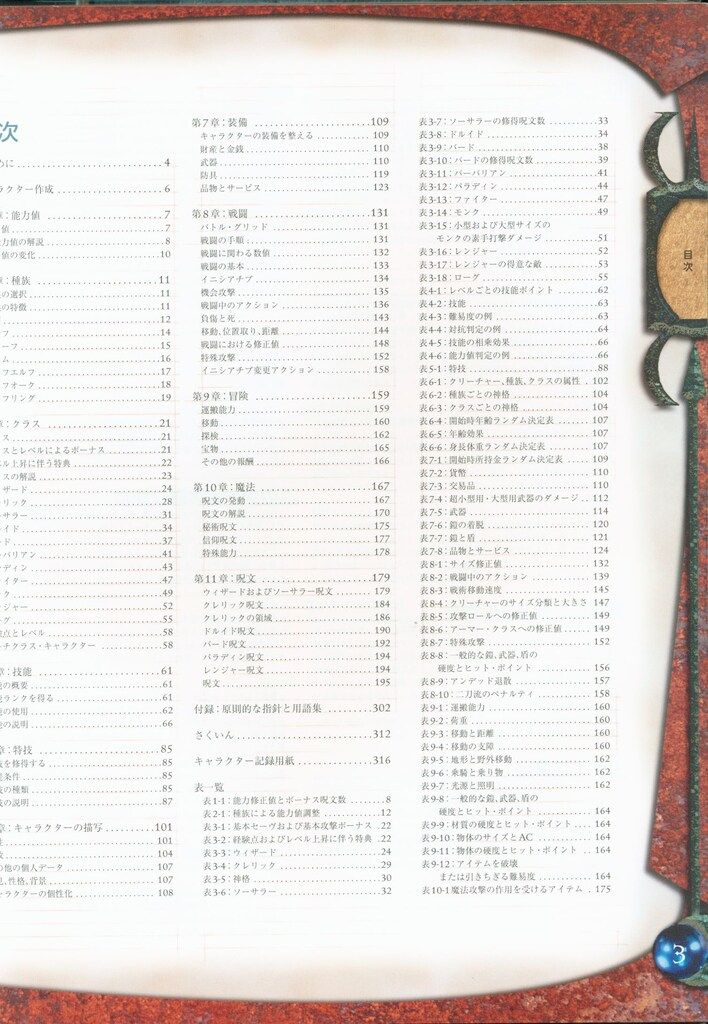 次
めに 4
ラクター作成 6
章：能力値 7
値 7
力値の解説 8
値の変化 10
章：種族 11
の選択 11
の特徴 11
12
フ 14
ーフ 15
ム 16
フエルフ 17
フオーク 18
フリング 19
章：クラス 21
ス 21
スとレベルによるボーナス 21
ル上昇に伴う特典 22
スの解説 23
ザード 24
リック 28
サラー 31
イド 34
ド 37
バリアン 41
ディン 43
イター 47
ク 49
ジャー 52
グ 55
点とレベル 58
チクラス・キャラクター 58
章：技能 61
の概要 61
ランクを得る 61
の使用 62
の説明 66
章：特技 85
を修得する 85
条件 85
の種類 85
の説明 87
章：キャラクターの描写 101
101
104
の他の個人データ 107
見、性格、背景 107
ラクターの個性化 108
第7章：装備 109
キャラクターの装備を整える 109
財産と金銭 110
武器 110
防具 119
品物とサービス 123
第8章：戦闘 131
バトル・グリッド 131
戦闘の手順 131
戦闘に関わる数値 132
戦闘の基本 133
イニシアチブ 134
機会攻撃 135
戦闘中のアクション 136
負傷と死 143
移動、位置取り、距離 144
戦闘における修正値 148
特殊攻撃 152
イニシアチブ変更アクション 158
第9章：冒険 159
運搬能力 159
移動 160
探検 162
宝物 165
その他の報酬 166
第10章：魔法 167
呪文の発動 167
呪文の解説 170
秘術呪文 175
信仰呪文 177
特殊能力 178
第11章：呪文 179
ウィザードおよびソーサラー呪文 179
クレリック呪文 184
クレリックの領域 186
ドルイド呪文 190
バード呪文 192
パラディン呪文 194
レンジャー呪文 194
呪文 195
付録：原則的な指針と用語集 302
さくいん 312
キャラクター記録用紙 316
表一覧
表1-1：能力修正値とボーナス呪文数 8
表2-1：種族による能力値調整 12
表3-1：基本セーヴおよび基本攻撃ボーナス 22
表3-2：経験点およびレベル上昇に伴う特典 22
表3-3：ウィザード 24
表3-4：クレリック 29
表3-5：神格 30
表3-6：ソーサラー 32
表3-7：ソーサラーの修得呪文数 33
表3-8：ドルイド 34
表3-9：バード 38
表3-10：バードの修得呪文数 39
表3-11：バーバリアン 41
表3-12：パラディン 44
表3-13：ファイター 47
表3-14：モンク 49
表3-15：小型および大型サイズの
モンクの素手打撃ダメージ 51
表3-16：レンジャー 52
表3-17：レンジャーの得意な敵 53
表3-18：ローグ 55
表4-1：レベルごとの技能ポイント 62
表4-2：技能 63
表4-3：難易度の例 64
表4-4：対抗判定の例 64
表4-5：技能の相乗効果 66
表4-6：能力値判定の例 66
表5-1：特技 88
表6-1：クリーチャー、種族、クラスの属性 102
表6-2：種族ごとの神格 104
表6-3：クラスごとの神格 104
表6-4：開始時年齢ランダム決定表 107
表6-5：年齢効果 107
表6-6：身長体重ランダム決定表 107
表7-1：開始時所持金ランダム決定表 109
表7-2：貨幣 110
表7-3：交易品 110
表7-4：超小型用・大型用武器のダメージ 112
表7-5：武器 114
表7-6：鎧の着脱 120
表7-7：鎧と盾 121
表7-8：品物とサービス 124
表8-1：サイズ修正値 132
表8-2：戦闘中のアクション 139
表8-3：戦術移動速度 145
表8-4：クリーチャーのサイズ分類と大きさ 147
表8-5：攻撃ロールへの修正値 149
表8-6：アーマー・クラスへの修正値 149
表8-7：特殊攻撃 152
表8-8：一般的な鎧、武器、盾の
硬度とヒット・ポイント 156
表8-9：アンデッド退散 157
表8-10：二刀流のペナルティ 158
表9-1：運搬能力 160
表9-2：荷重 160
表9-3：移動と距離 160
表9-4：移動の支障 160
表9-5：地形と野外移動 162
表9-6：乗騎と乗り物 162
表9-7：光源と照明 162
表9-8：一般的な鎧、武器、盾の
硬度とヒット・ポイント 164
表9-9：材質の硬度とヒット・ポイント 164
表9-10：物体のサイズとAC 164
表9-11：物体の硬度とヒット・ポイント 164
表9-12：アイテムを破壊
または引きちぎる難易度 164
表10-1魔法攻撃の作用を受けるアイテム 175
目次
3